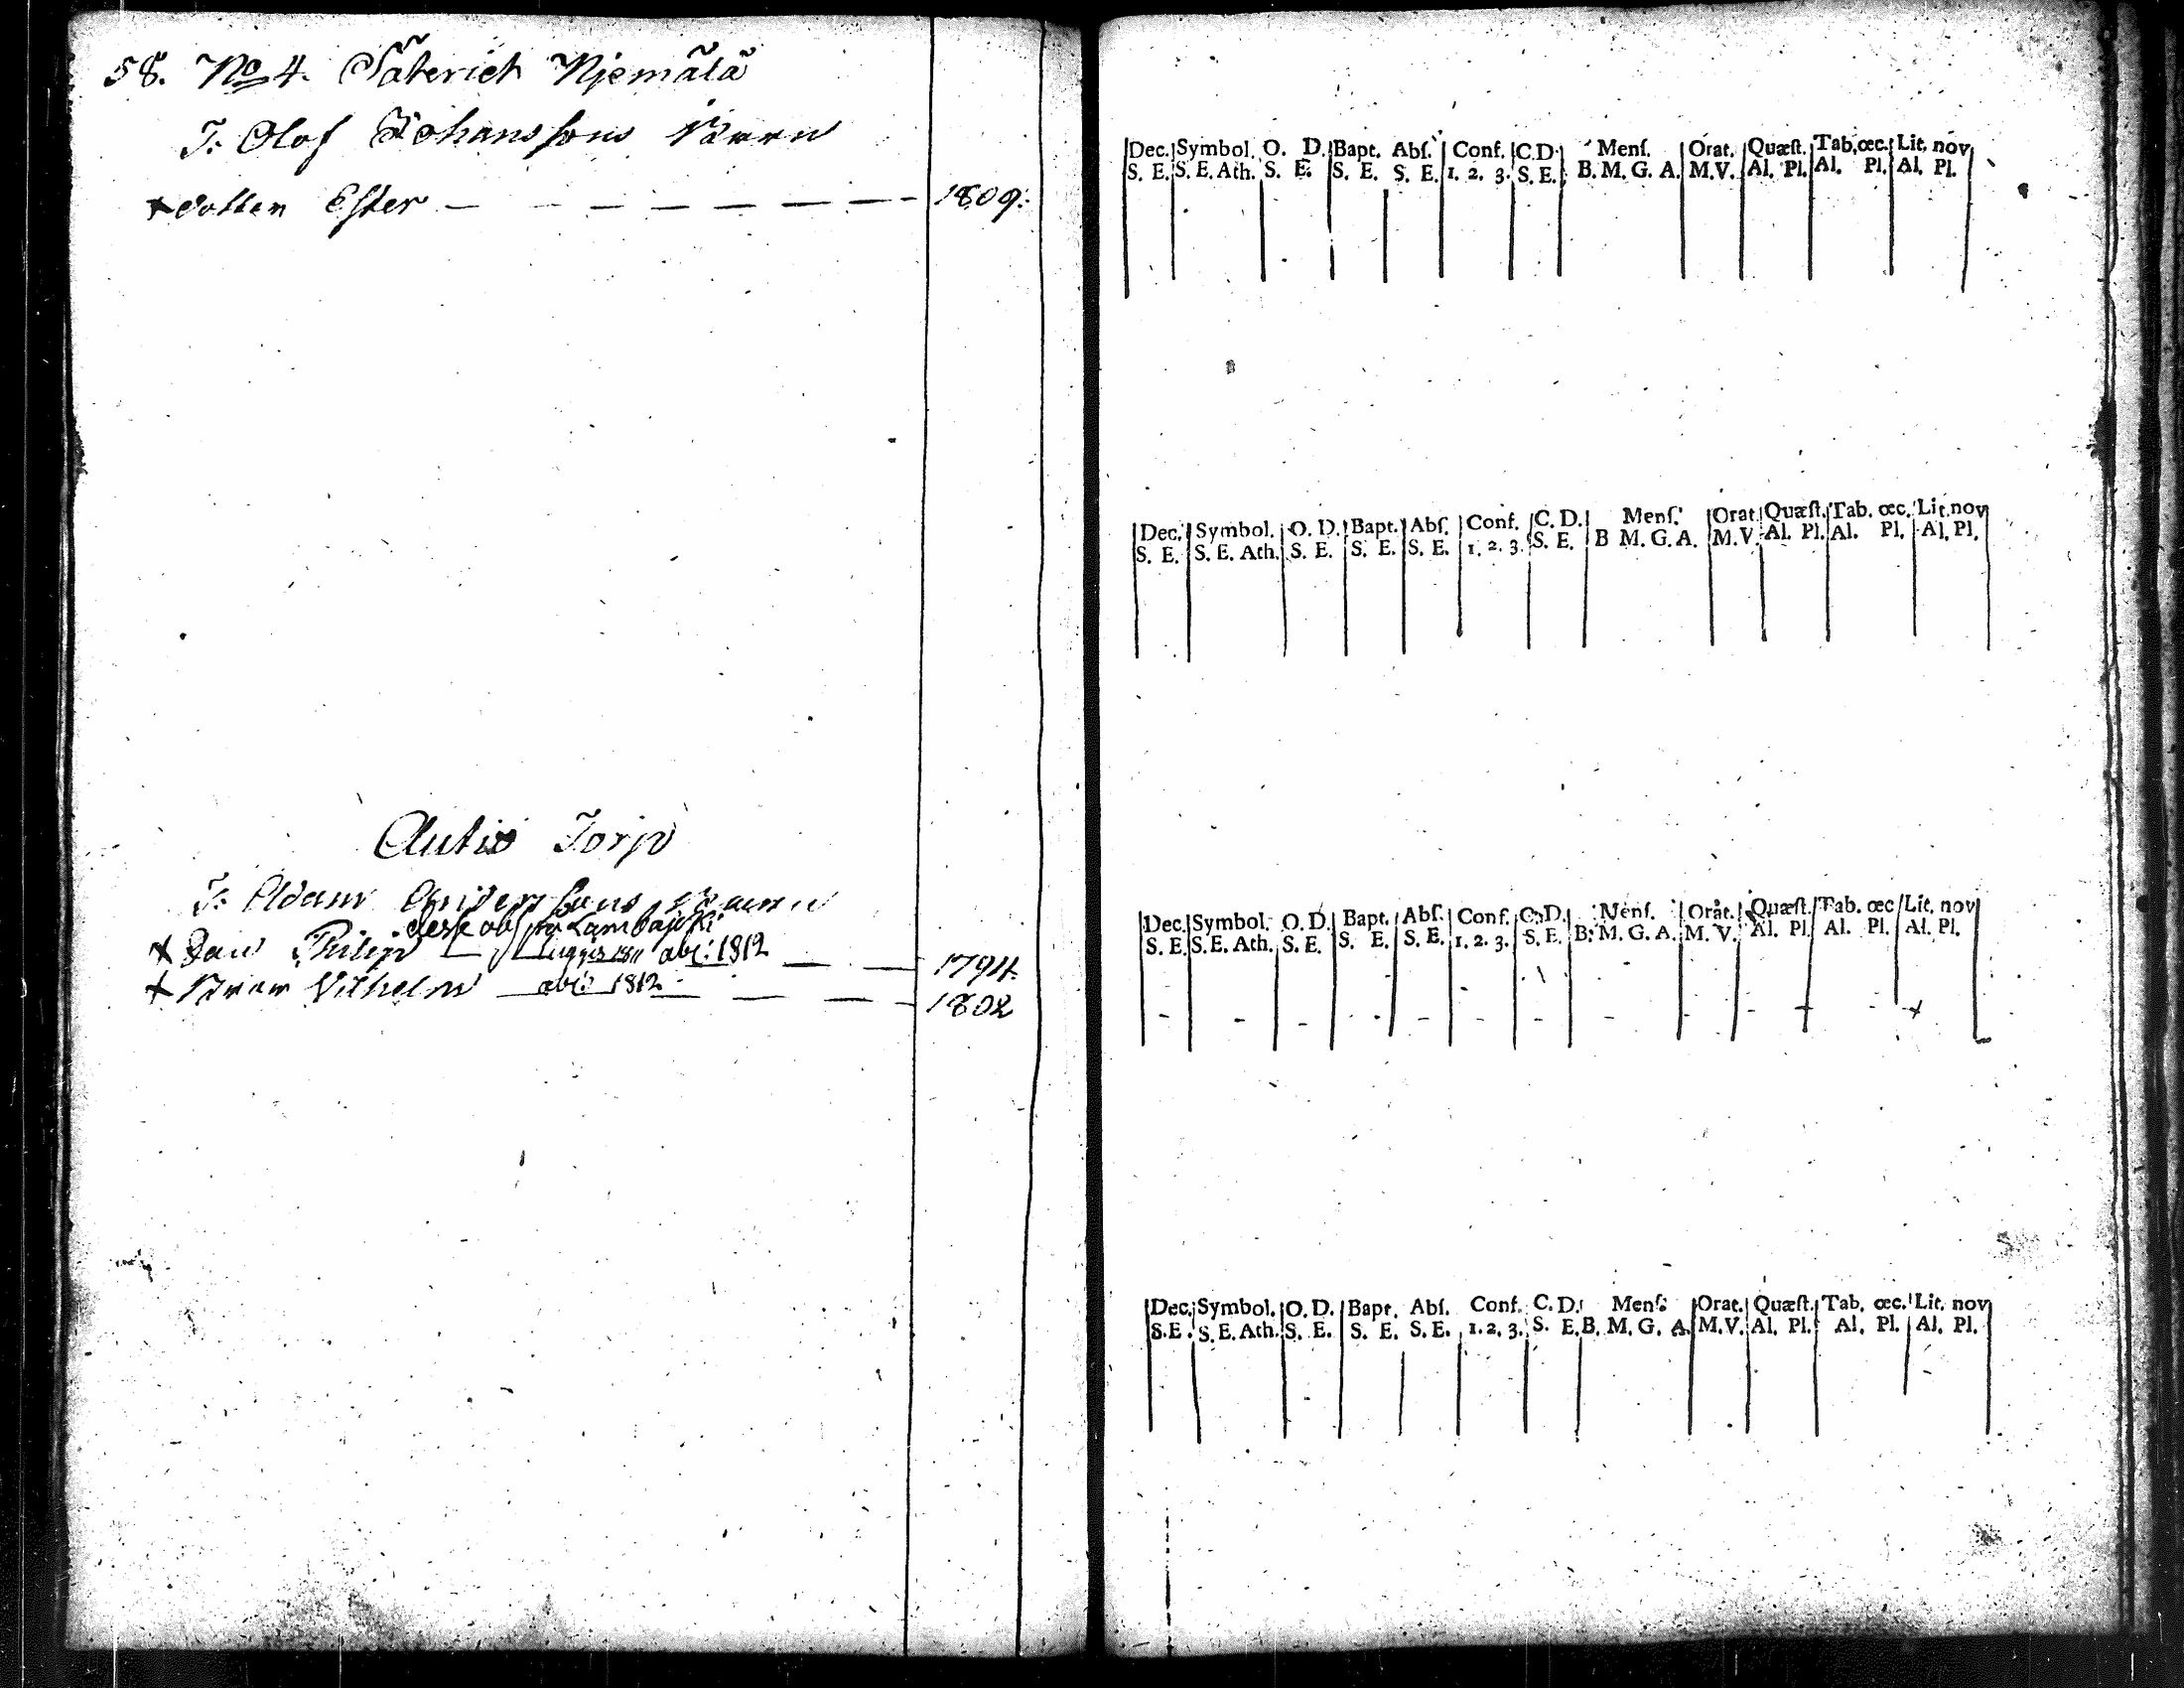 58. No 4. Säteriet Njemälä
T: Olof Johanssons Barn
+ Dotter Ester — — — — — — — — 1809.
Autio Torp
T: Adam Anderssons Barn
+ Son Philip — 1811 abs: 1812 — — 1794.
+ Wilhelm — abs: 1812 — — — 1802
Dec. Symbol. O. D. Bapt. Abſ. Conf. C.D. Menſ. Orat. Quæſt. Tab. œc. Lit. nov
S. E. S. E. Ath. S. E. S. E. S. E. 1. 2. 3. S. E. B. M. G. A. M.V. Al. Pl. Al. Pl. Al. Pl.
Dec. Symbol. O. D. Bapt. Abſ. Conf. C. D. Menſ. Orat. Quæſt. Tab. œc. Lit. nov
S. E. S. E. Ath. S. E. S. E. S. E. 1. 2. 3. S. E. B M. G. A. M.V. Al. Pl. Al. Pl. Al. Pl.
Dec. Symbol. O. D. Bapt. Abſ. Conf. C. D. Menſ. Orat. Quæſt. Tab. œc. Lit. nov
S. E. S. E. Ath. S. E. S. E. S. E. 1. 2. 3. S. E. B. M. G. A. M. V. Al. Pl. Al. Pl. Al. Pl.
Dec. Symbol. O. D. Bapt. Abſ. Conf. C. D. Menſ. Orat. Quæſt. Tab. œc. Lit. nov
S. E. S. E. Ath. S. E. S. E. S. E. 1. 2. 3. S. E. B. M. G. A. M. V. Al. Pl. Al. Pl. Al. Pl.